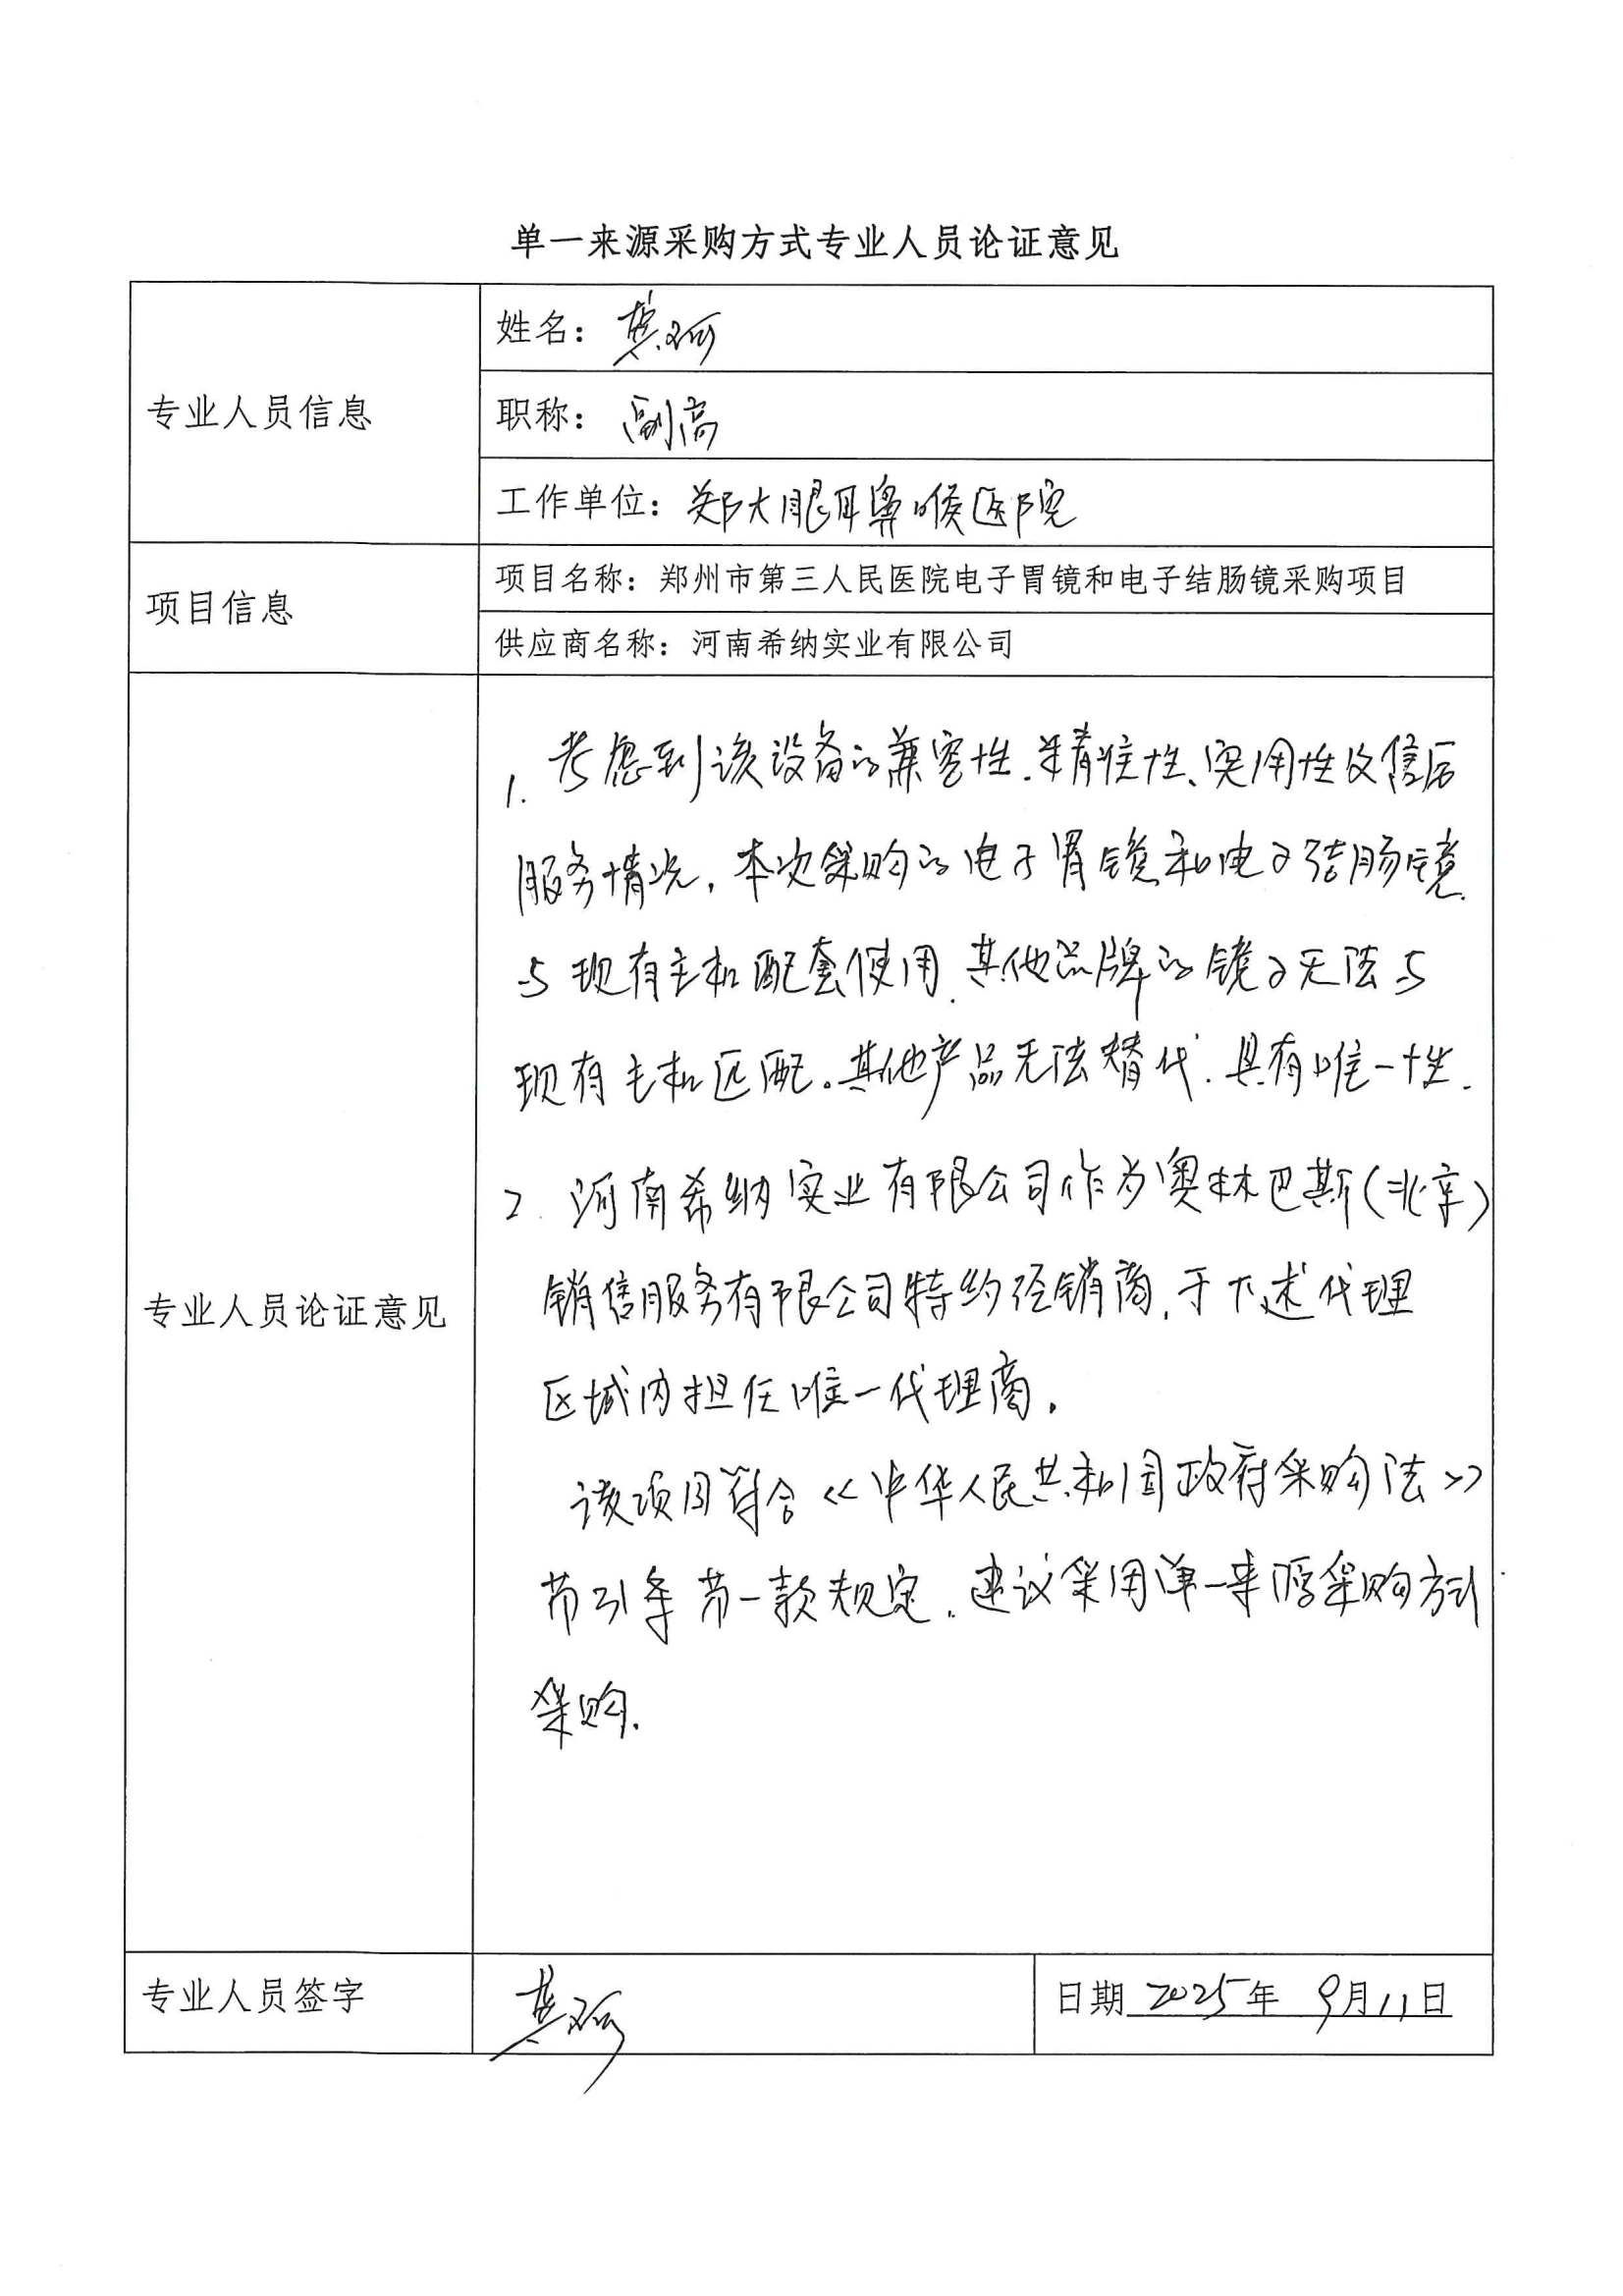 单一来源采购方式专业人员论证意见
专业人员信息
姓名：
职称：副高
工作单位：郑大眼耳鼻喉医院
项目信息
项目名称：郑州市第三人民医院电子胃镜和电子结肠镜采购项目
供应商名称：河南希纳实业有限公司
专业人员论证意见
1. 考虑到该设备的兼容性、精准性、实用性及售后
服务情况，本次采购的电子胃镜和电子结肠镜
与现有主机配套使用，其他品牌的镜子无法与
现有主机匹配。其他产品无法替代，具有唯一性.
2. 河南希纳实业有限公司作为奥林巴斯（北京）
销售服务有限公司特约经销商，于下述代理
区域内担任唯一代理商.
该项目符合《中华人民共和国政府采购法》
第31条第一款规定，建议采用单一来源采购方式
采购.
专业人员签字
日期 2025年 9月11日